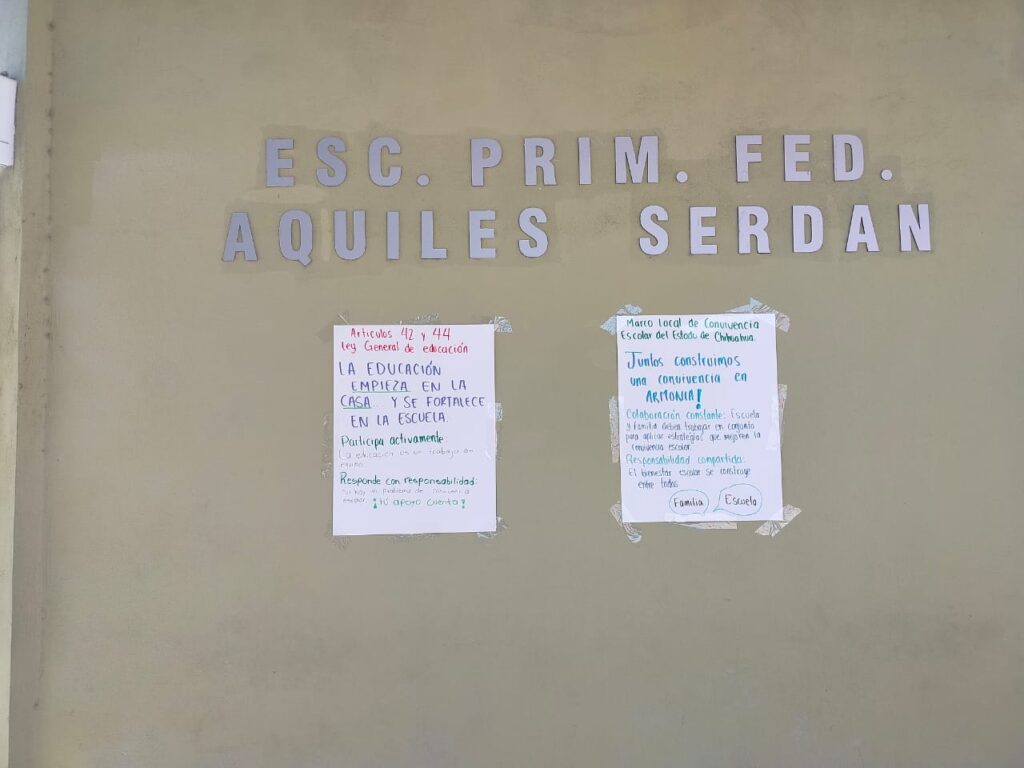 ESC. PRIM. FED.
AQUILES SERDAN
Articulos 42 y 44
Ley General de educación
LA EDUCACIÓN
EMPIEZA EN LA
CASA Y SE FORTALECE
EN LA ESCUELA.
Participa activamente:
La educación es un trabajo en
equipo
Responde con responsabilidad:
Si hay un problema de convivencia
escolar, ¡TU apoyo cuenta!
Marco Local de Convivencia
Escolar del Estado de Chihuahua.
Juntos construimos
una convivencia en
ARMONIA!
Colaboración constante: Escuela
y Familia deben trabajar en conjunto
para aplicar estrategias que mejoren la
convivencia escolar.
Responsabilidad compartida:
El bienestar escolar se construye
entre todos
Familia
Escuela